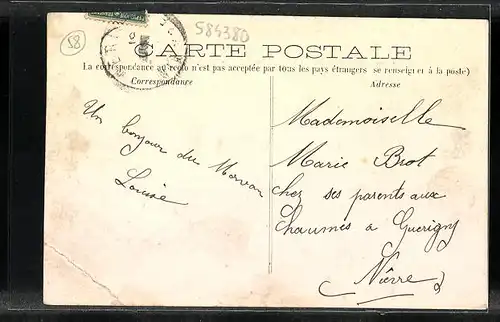 58
584380
CARTE POSTALE
La correspondance au recto n'est pas acceptée par tous les pays étrangers se renseigner à la poste)
Correspondance
Adresse
Un bonjour du Morvan
Louise
Mademoiselle
Marie Brot
chez ses parents aux
Chaumes à Guerigny
(Nièvre)